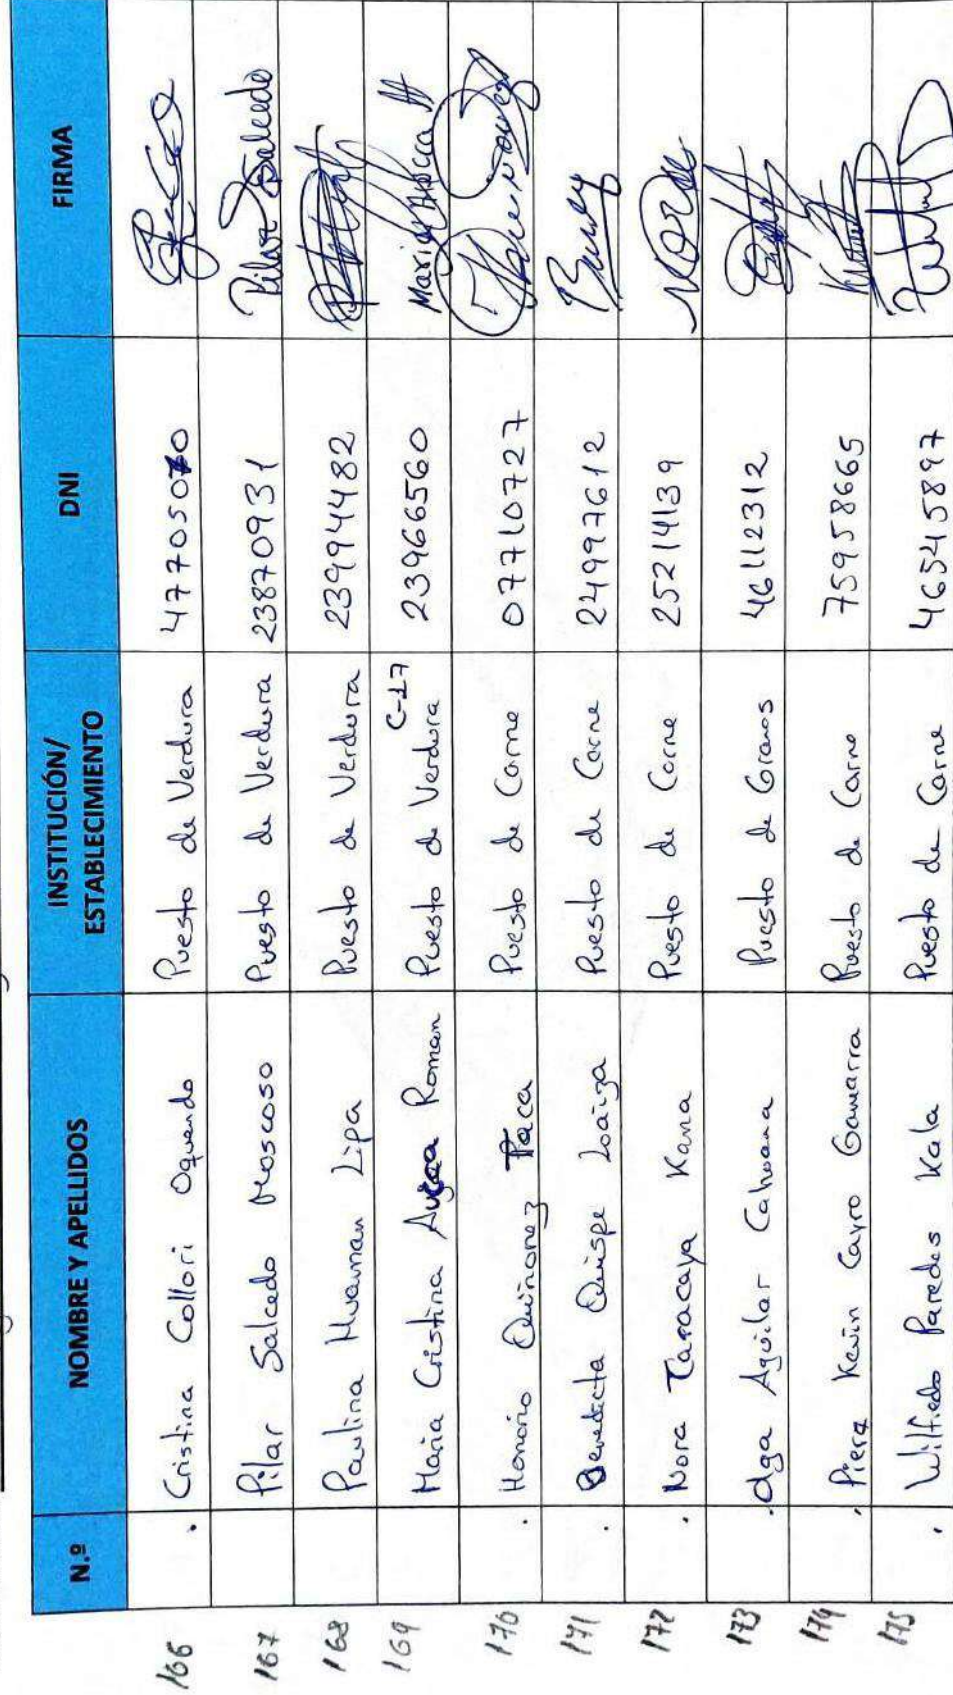 N.º NOMBRE Y APELLIDOS INSTITUCIÓN/ ESTABLECIMIENTO DNI FIRMA
166 Cristina Collori Oquendo Puesto de Verdura 47705070
167 Pilar Salcedo Moscoso Puesto de Verdura 23870931 Pilar Salcedo
168 Paulina Huaman Lipa Puesto de Verdura 23994482
169 Maria Cristina Aucca Roman Puesto de Verdura C-17 23966560
170 Honorio Quiñonez Paca Puesto de Carne 07710727
171 Benedicta Quispe Loaiza Puesto de Carne 24997612
172 Nora Taracaya Kana Puesto de Carne 25214139
173 Olga Aguilar Cahuana Puesto de Granos 46112312
174 Piera Kevin Cayro Gamarra Puesto de Carne 75958665
175 Wilfredo Paredes Kala Puesto de Carne 46545897